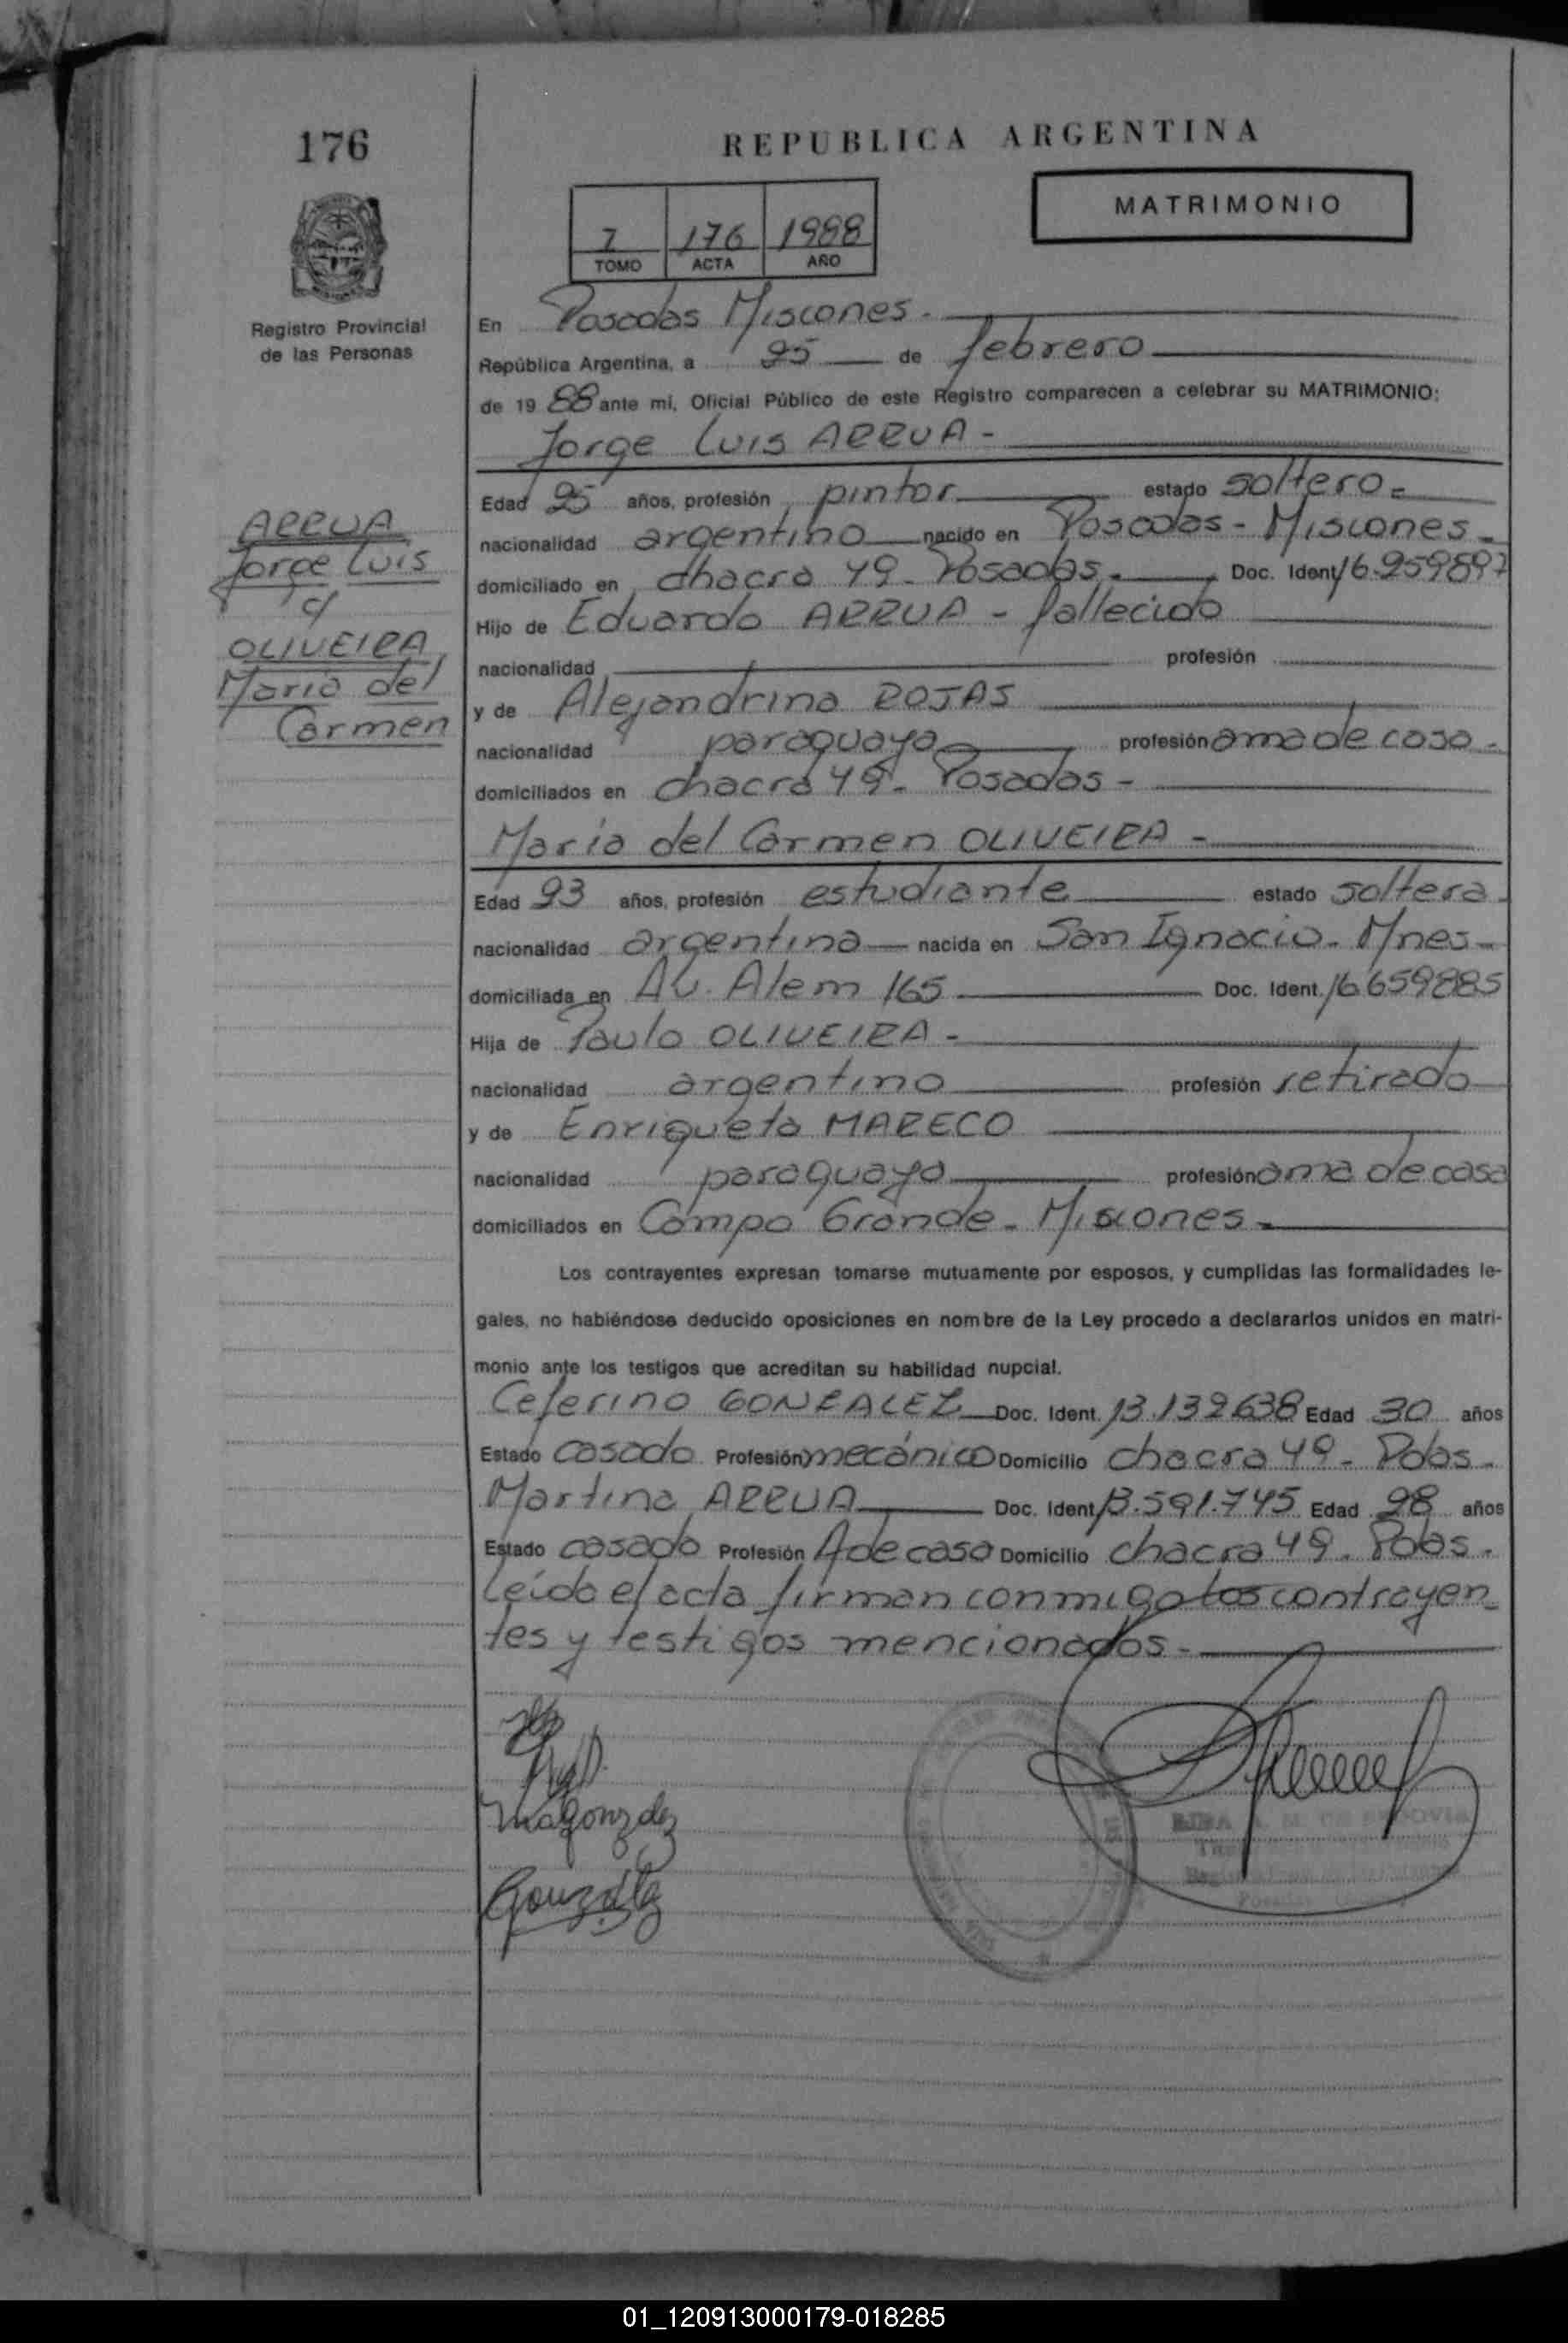 176
REPUBLICA ARGENTINA
MATRIMONIO
I 176 1988
TOMO ACTA AÑO
Registro Provincial
de las Personas
ARRUA
Jorge Luis
c/
OLIVEIRA
Maria del
Carmen
En Posadas Misiones.
República Argentina, a 25 de febrero
de 19 88 ante mi, Oficial Público de este Registro comparecen a celebrar su MATRIMONIO:
Jorge Luis ARRUA -
Edad 25 años, profesión pintor estado soltero -
nacionalidad argentino nacido en Posadas - Misiones -
domiciliado en chacra 49 - Posadas - Doc. Ident. 16.259897
Hijo de Eduardo ARRUA - fallecido
nacionalidad profesión
y de Alejandrina ROJAS
nacionalidad paraguaya profesión ama de casa -
domiciliados en chacra 49 - Posadas -
Maria del Carmen OLIVEIRA -
Edad 23 años, profesión estudiante estado soltera -
nacionalidad argentina nacida en San Ignacio - Mnes -
domiciliada en Av. Alem 165 Doc. Ident. 16659885
Hija de Paulo OLIVEIRA -
nacionalidad argentino profesión retirado
y de Enriqueta MARECO
nacionalidad paraguaya profesión ama de casa
domiciliados en Campo Grande - Misiones -
Los contrayentes expresan tomarse mutuamente por esposos, y cumplidas las formalidades le-
gales, no habiéndose deducido oposiciones en nombre de la Ley procedo a declararlos unidos en matri-
monio ante los testigos que acreditan su habilidad nupcial.
Ceferino GONZALEZ Doc. Ident. 13.132638 Edad 30 años
Estado casado Profesión mecánico Domicilio chacra 49 - Pdas -
Martina ARRUA Doc. Ident. 13.591.745 Edad 28 años
Estado casada Profesión A de casa Domicilio chacra 49 - Pdas -
Leído el acta firman conmigo los contrayen-
tes y testigos mencionados -
01_120913000179-018285